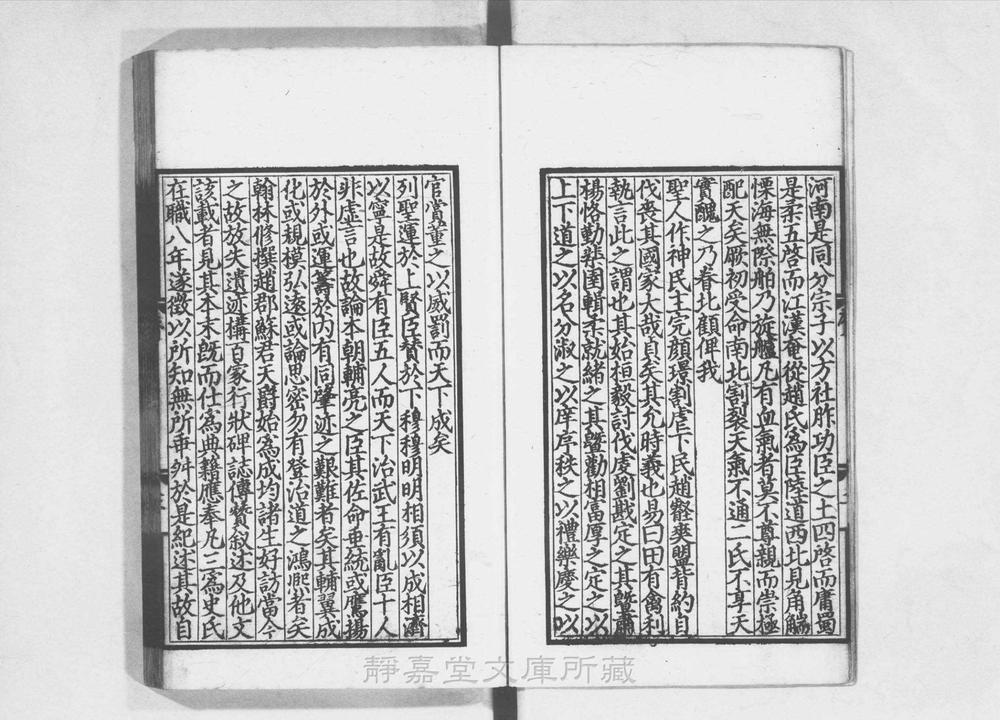 河南是同分宗子以方社胙功臣之土四啓而庸蜀
是柔五啓而江漢奄從趙氏爲臣陸道西北見角端
慄海無際舶乃旋艫凡有血氣者莫不尊親而崇極
配天矣厥初受命南北割裂天氣不通二氏不享天
實醜之乃眷北顧俾我
聖人作神民主完顏璟割虐下民趙㬎爽盟背約自
伐喪其國家大哉貞矣其允時義也易曰田有禽利
執言此之謂也其始桓毅討伐虔劉戡定之其曁肅
楊恪勤拜圉輯柔就緒之其曁勸相富厚之定之以
上下道之以名分淑之以庠序秩之以禮樂麾之以
官賞董之以威罰而天下成矣
列聖運於上賢臣贊於下穆穆明明相須以成相濟
以寧是故舜有臣五人而天下治武王有亂臣十人
非虛言也故論本朝輔亮之臣其佐命垂統或鷹揚
於外或運籌於内有同肇迹之艱難者矣其輔翼成
化或規模弘遠或論思密勿有發治道之鴻熙者矣
翰林修撰趙郡蘇君天爵始爲成均諸生好訪當今
之故放失遺迹搆百家行狀碑誌傳贊叙述及他文
該載者見其本末旣而仕爲典籍應奉凡三爲史氏
在職八年遂徵以所知無所乖舛於是紀述其故自
靜嘉堂文庫所藏